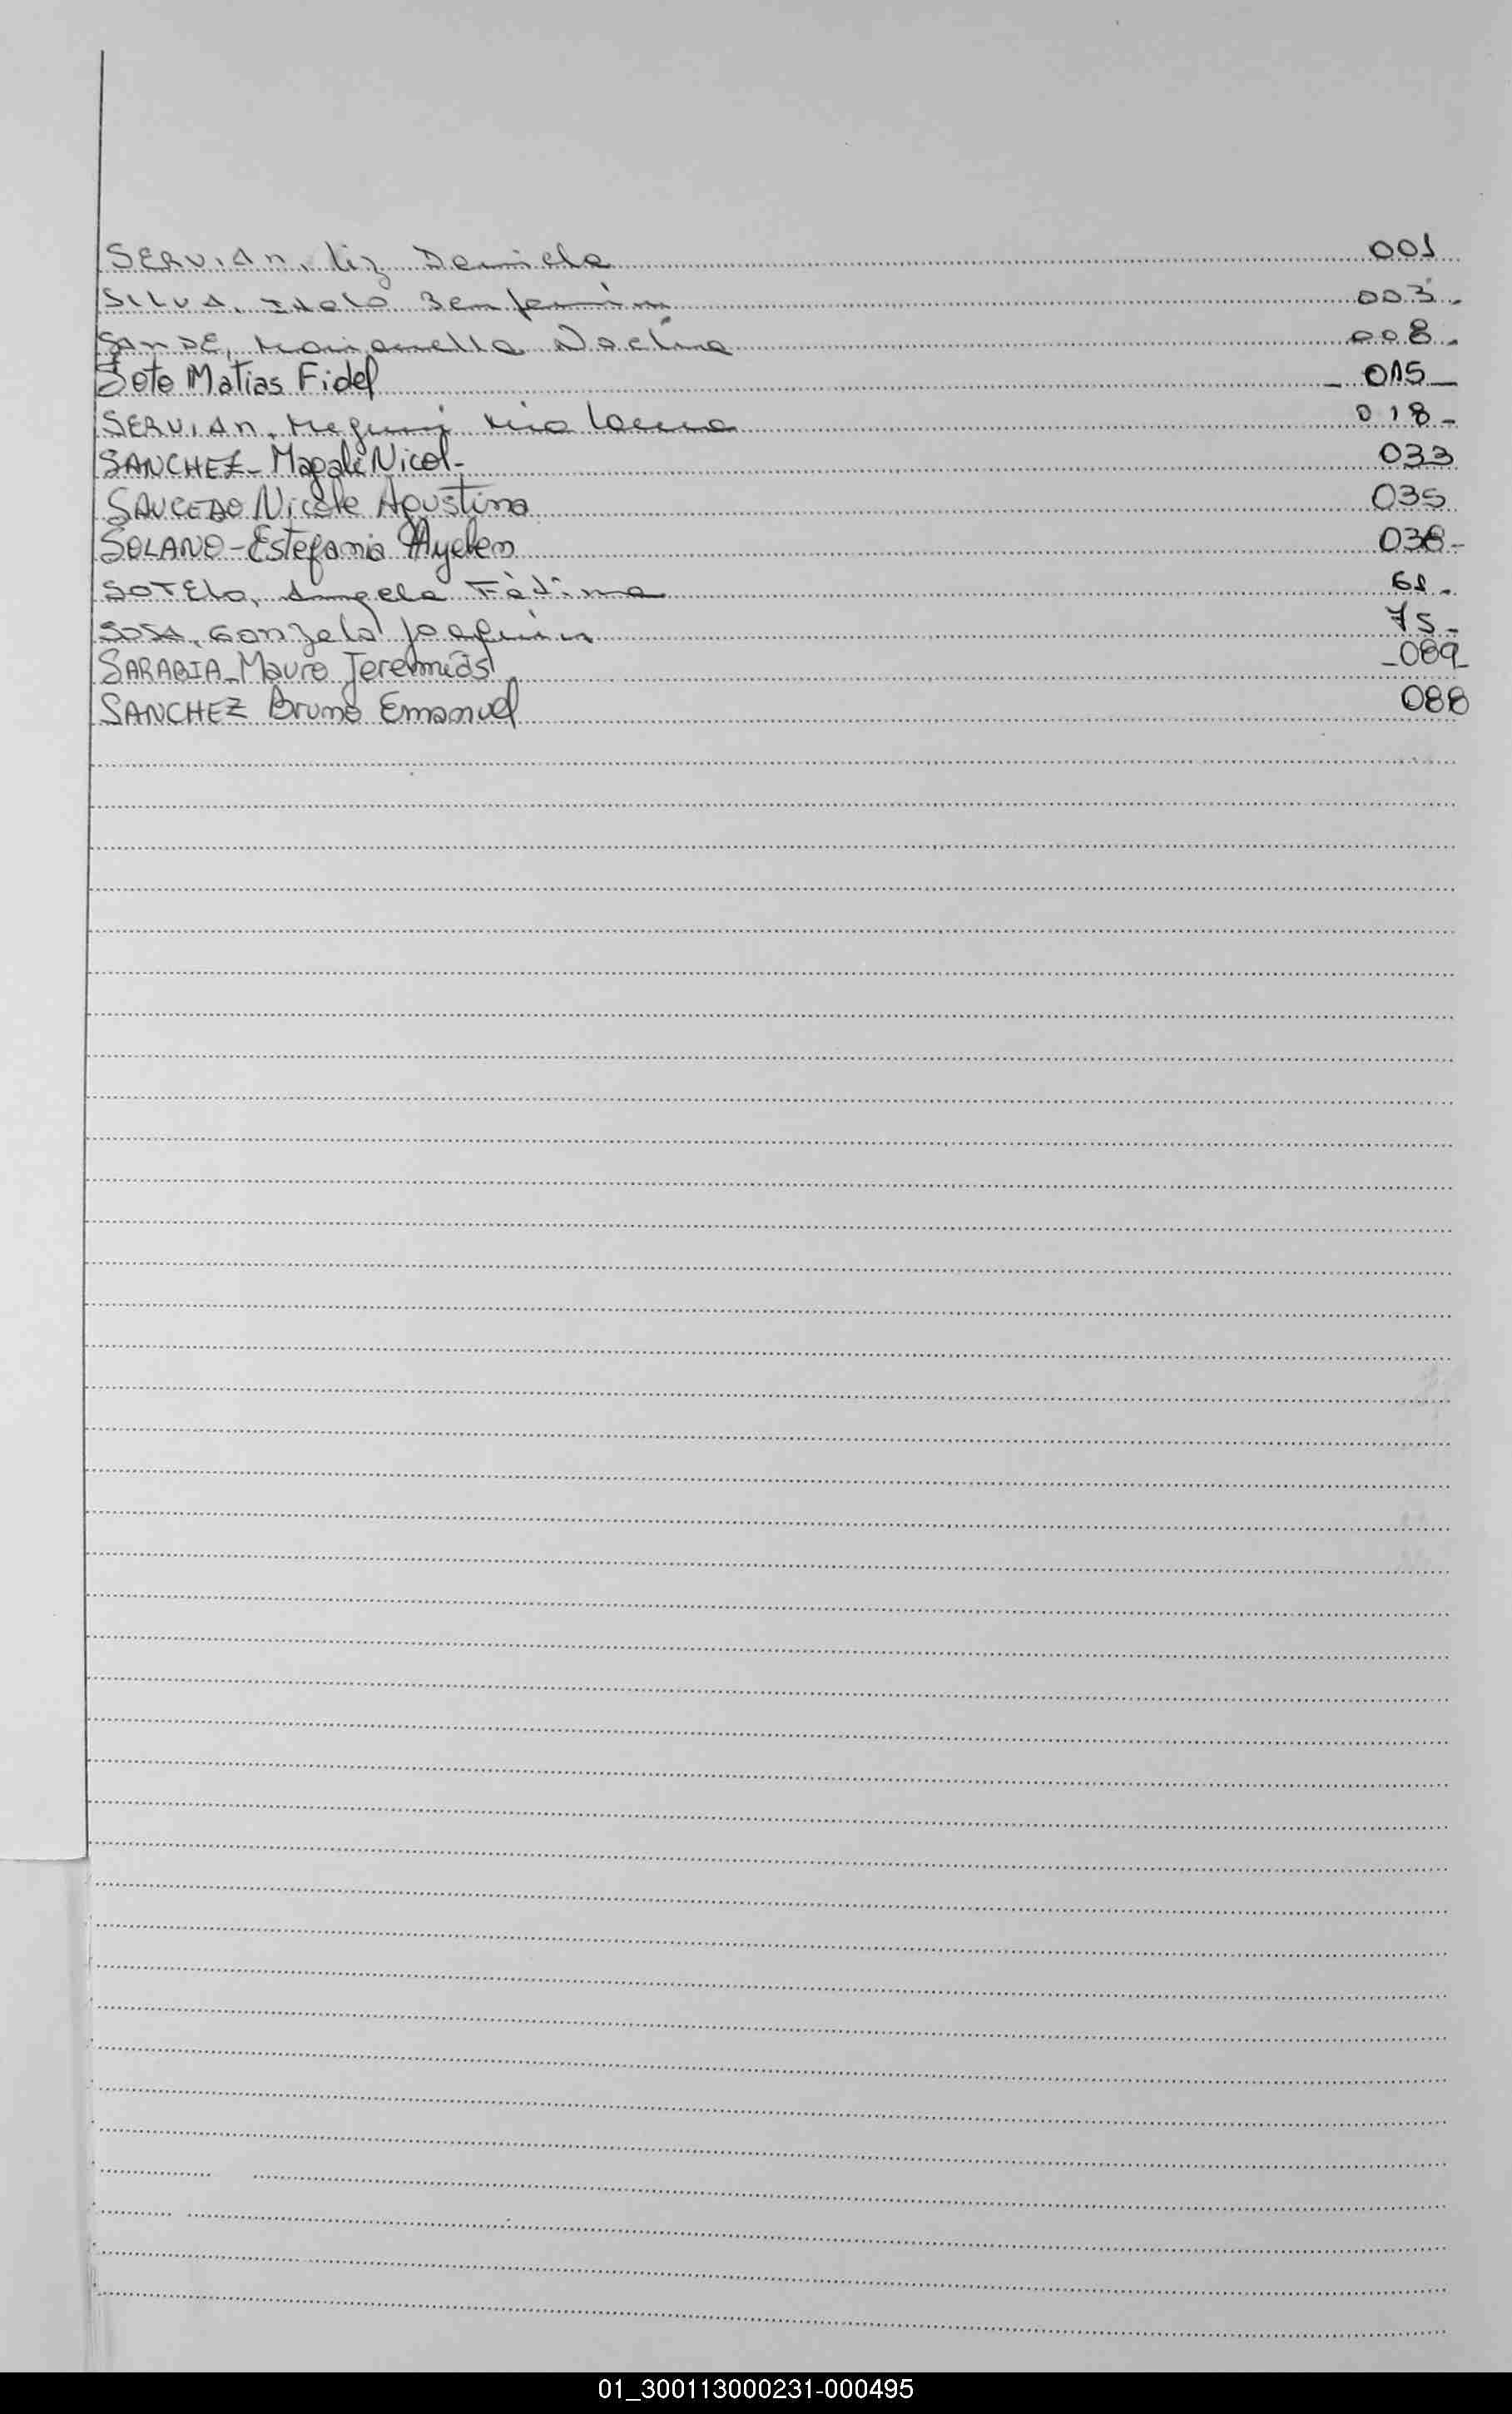 SERVIAN, Liz Daniela 001
SILVA, Italo Benjamin 003-
SANDE, Marianella Noelina 008-
Soto Matias Fidel - 015 -
SERVIAN, Mia 018-
SANCHEZ - Magali Nicol - 033
SAUCEDO Nicole Agustina 035
SOLANO - Estefania Ayelen 038-
SOTELO, Angela Fátima 61-
SOSA, Gonzalo Joaquin 75-
SARABIA - Mauro Jeremias -089-
SANCHEZ Bruno Emanuel 088
01_300113000231-000495